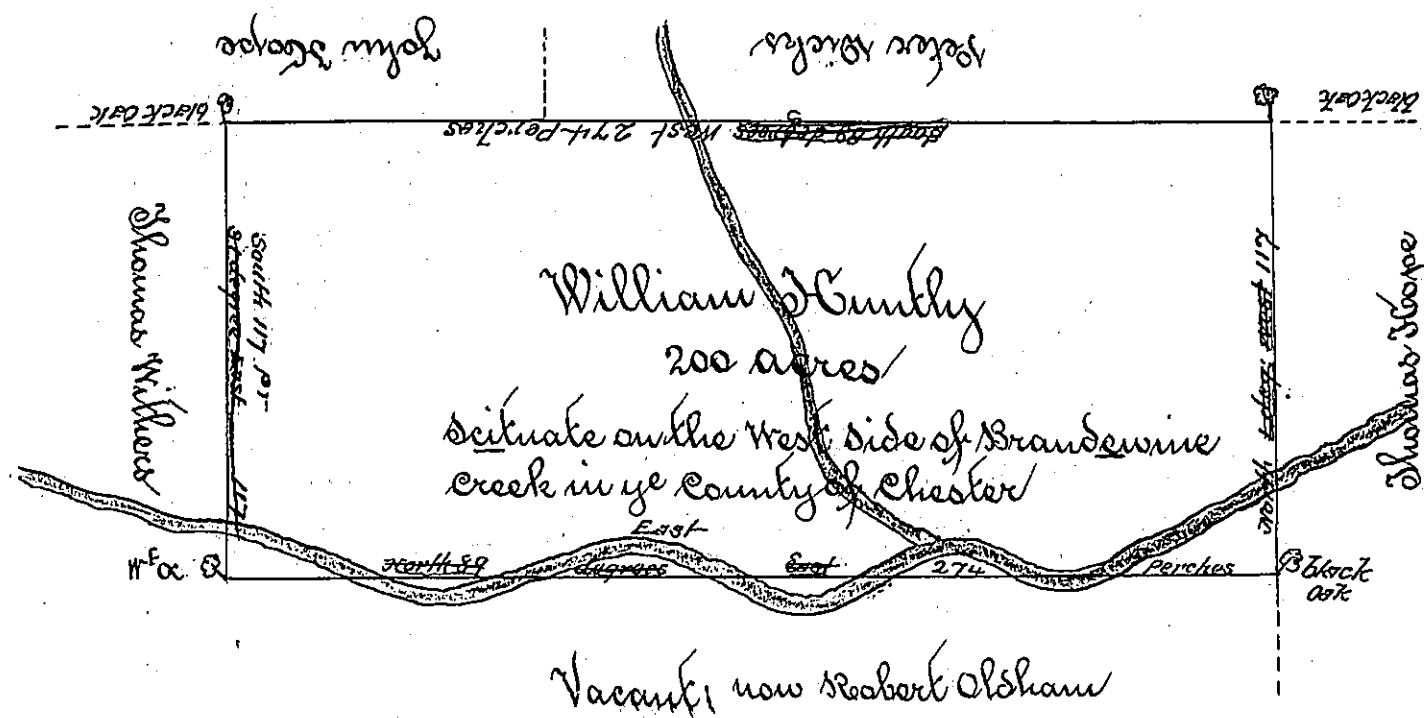 John Hope
Peter Dicks
black Oak
black Oak
South 89 degrees West 274 Perches
Thomas Withers
South 117 pr
degree East 117
William Huntly
200 acres
Scituate on the West side of Brandewine
creek in ye County of Chester
North
117
Thomas Hope
East
Wt Oak
North 89 degrees East 274 Perches
black
Oak
Vacant, now Robert Oldham